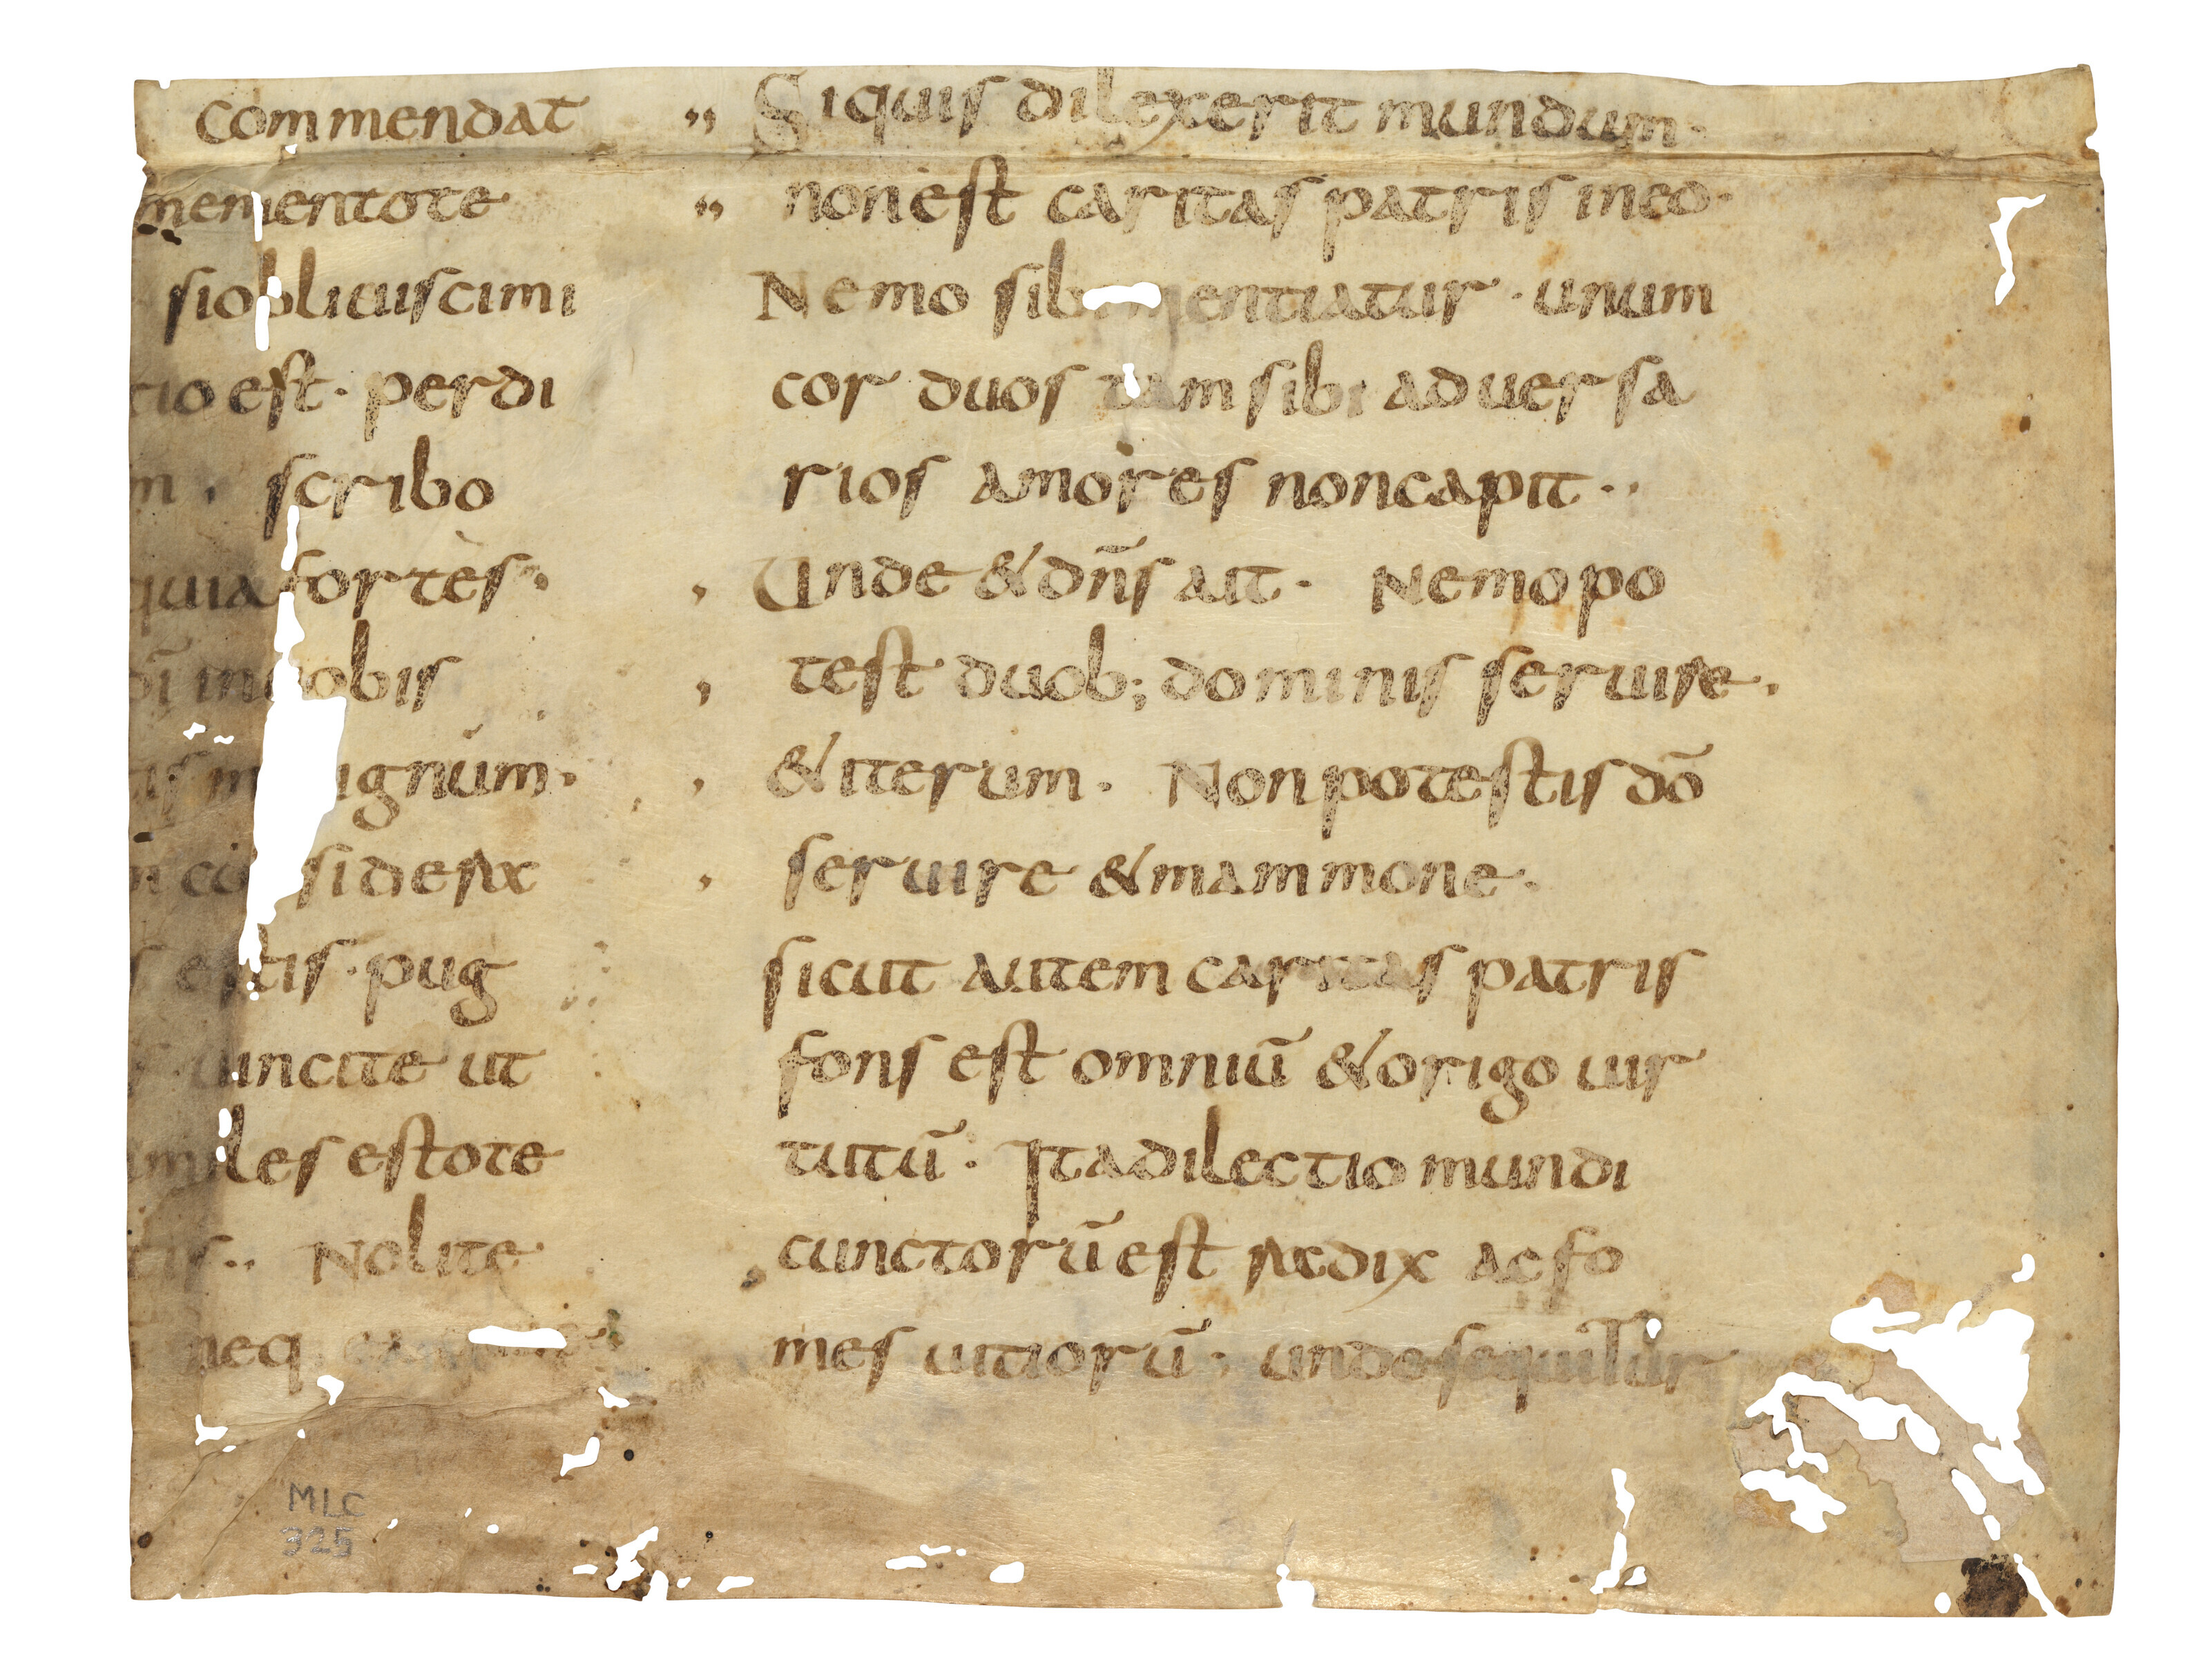 commendat
mementote
siobliuiscimi
tio est · perdi
scribo
quia fortes ·
di in uobis
ignum ·
siderax
estis · pug
uincite ut
miles estote
tis ·· Nolite
neq
" Siquis dilexerit mundum ·
" non est caritas patris in eo ·
Nemo sibi mentiatur · unum
cor duos tam sibi aduersa
rios amores non capit ··
, Unde & dn̄s ait · Nemo po
, test duob; dominis seruire ·
, & iterum · Non potestis dō
, seruire & mammone ·
sicut autem caritas patris
fons est omniū & origo uir
tutū · Ita dilectio mundi
cunctorū est radix ac fo
mes uitiorū · unde sequitur
MLC
325